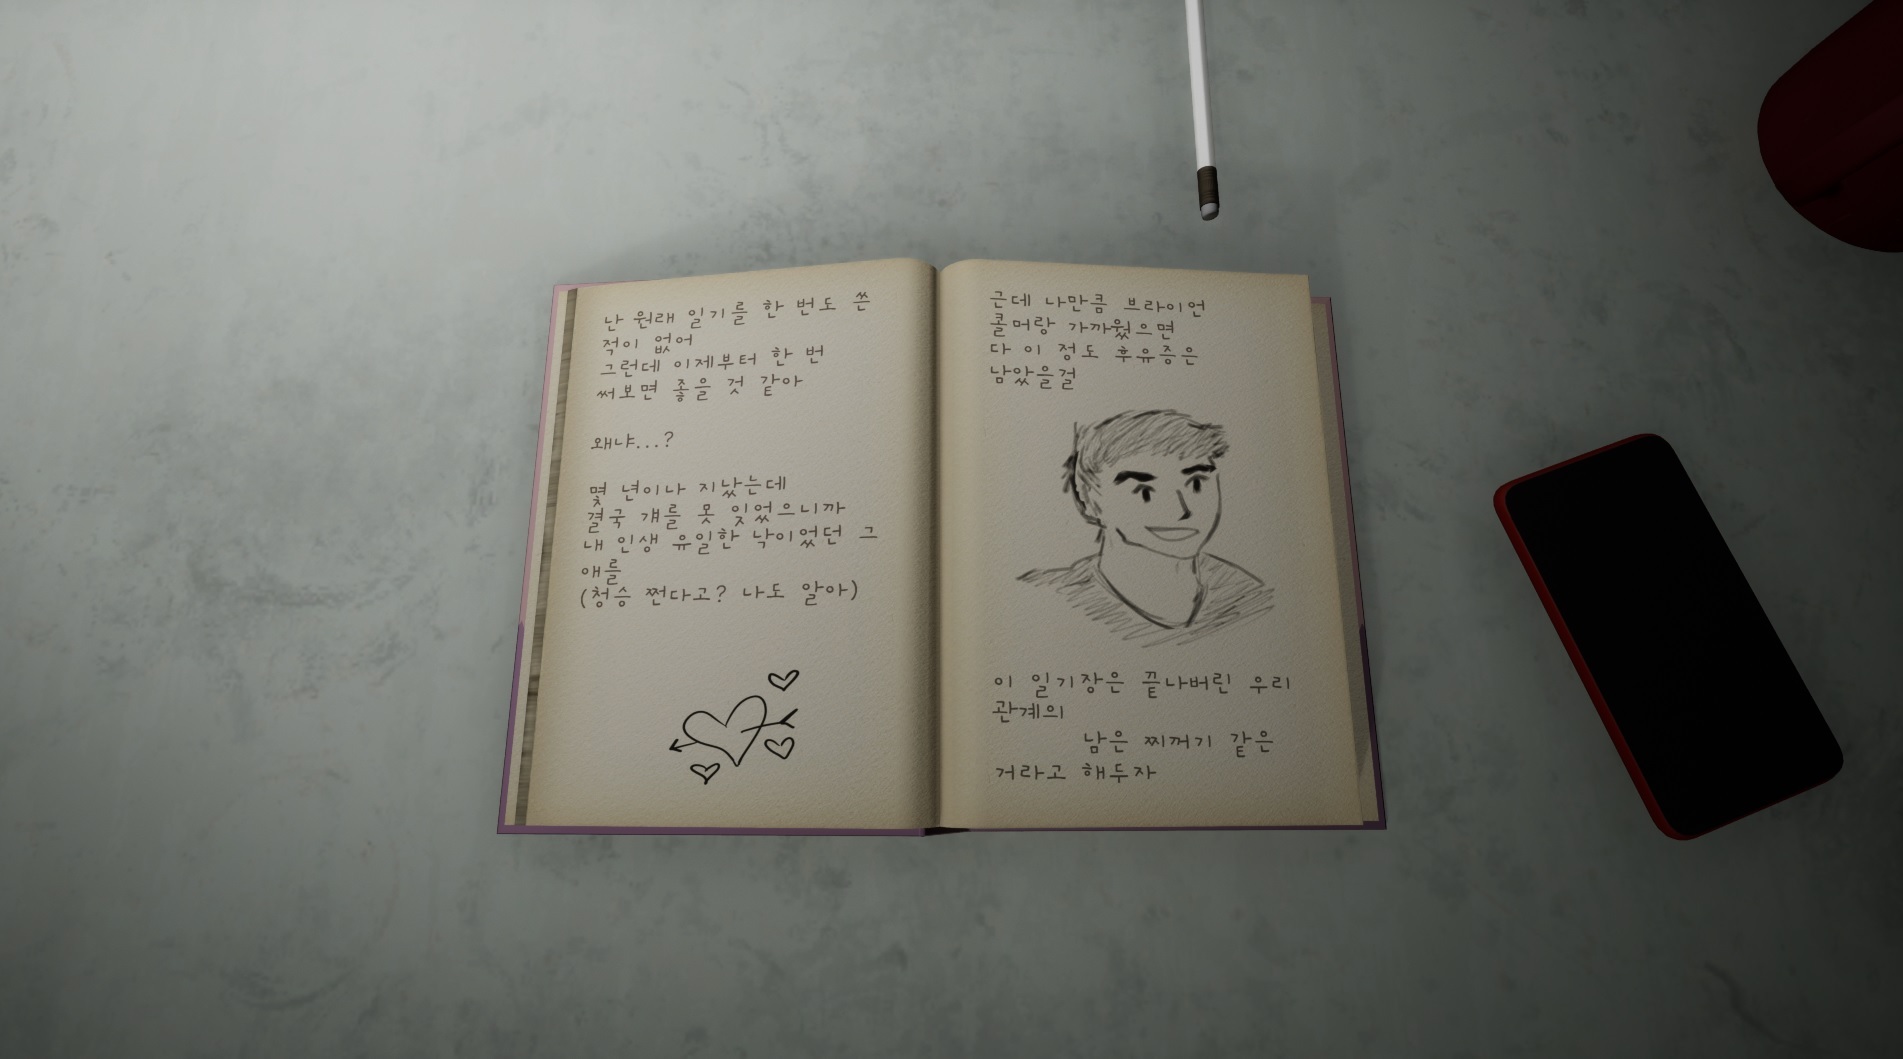 난 원래 일기를 한 번도 쓴
적이 없어
그런데 이제부터 한 번
써보면 좋을 것 같아
왜냐...?
몇 년이나 지났는데
결국 걔를 못 잊었으니까
내 인생 유일한 낙이었던 그
애를
(청승 쩐다고? 나도 알아)
근데 나만큼 브라이언
콜머랑 가까웠으면
다 이 정도 후유증은
남았을걸
이 일기장은 끝나버린 우리
관계의
남은 찌꺼기 같은
거라고 해두자